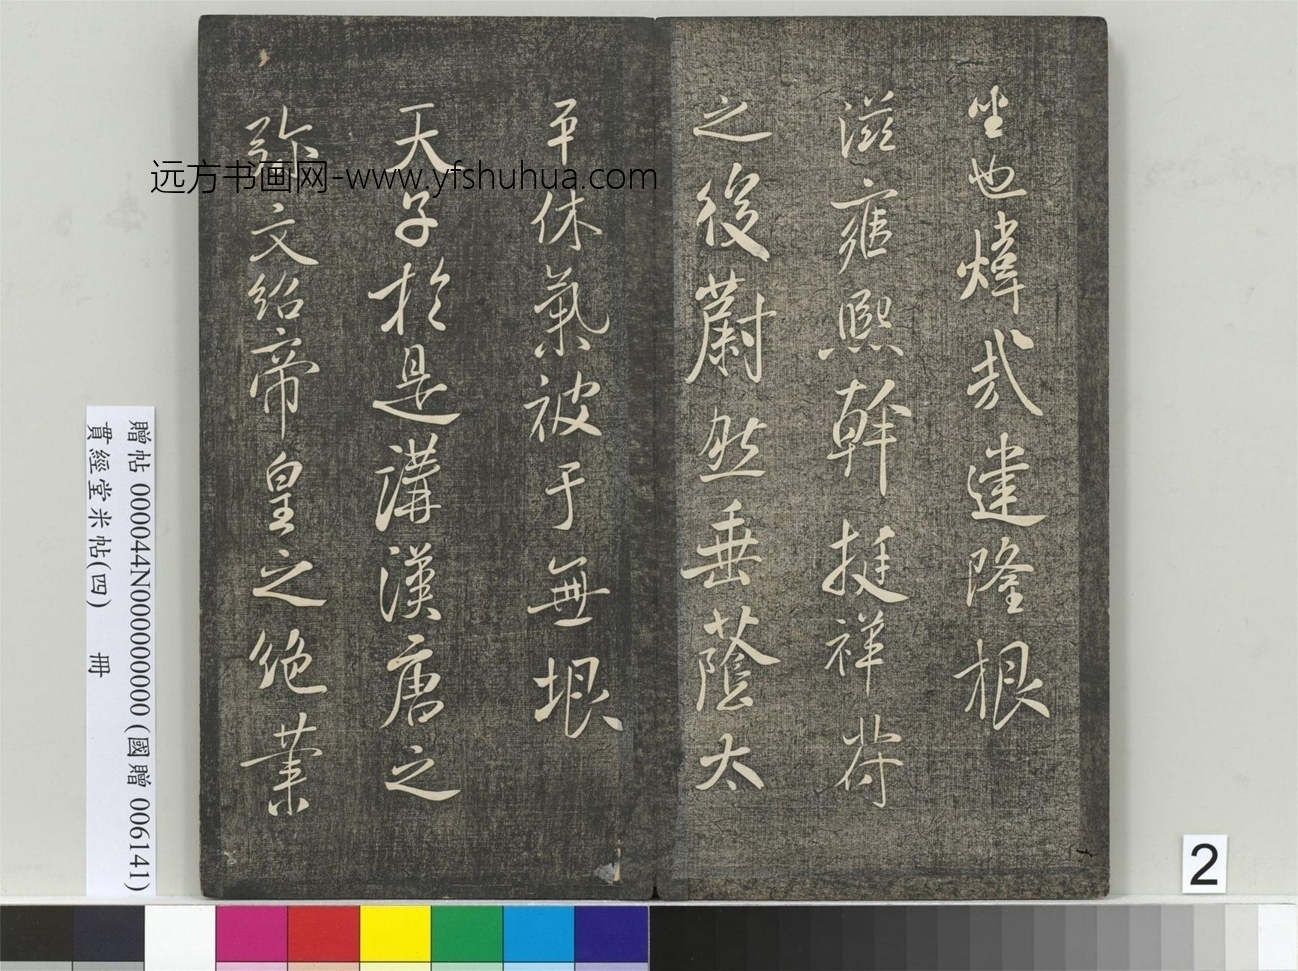 坐也煒哉建隆根
滋雍熙幹挺祥符
之後蔚然垂蔭太
平休氣被于無垠
天子於是講漢唐之
弥文紹帝皇之絶業
远方书画网-www.yfshuhua.com
贈帖 000044N000000000 (國贈 006141)
貫經堂米帖(四) 冊
2